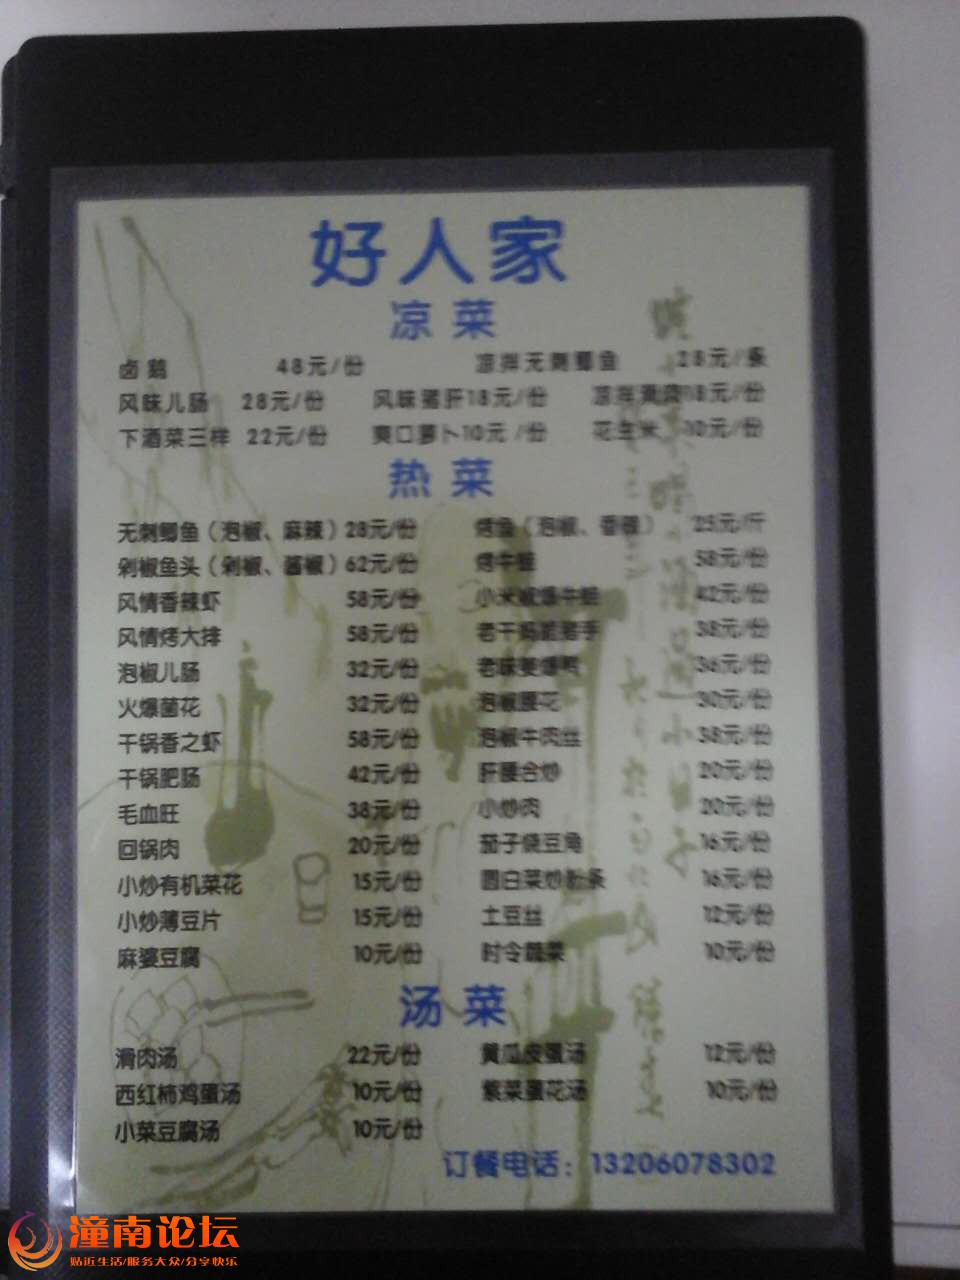 好人家
凉菜
卤鹅 48元/份 凉拌无刺鲫鱼 28元/条
风味儿肠 28元/份 风味猪肝18元/份 凉拌黄瓜18元/份
下酒菜三样 22元/份 爽口萝卜10元/份 花生米 10元/份
热菜
无刺鲫鱼（泡椒、麻辣）28元/份 烤鱼（泡椒、香辣） 25元/斤
剁椒鱼头（剁椒、酱椒）62元/份 烤牛蛙 58元/份
风情香辣虾 58元/份 小米椒爆牛蛙 42元/份
风情烤大排 58元/份 老干妈 猪手 38元/份
泡椒儿肠 32元/份 老味姜爆鸭 36元/份
火爆菌花 32元/份 泡椒腰花 30元/份
干锅香之虾 58元/份 泡椒牛肉丝 38元/份
干锅肥肠 42元/份 肝腰合炒 20元/份
毛血旺 38元/份 小炒肉 20元/份
回锅肉 20元/份 茄子烧豆角 16元/份
小炒有机菜花 15元/份 圆白菜炒粉条 16元/份
小炒薄豆片 15元/份 土豆丝 12元/份
麻婆豆腐 10元/份 时令蔬菜 10元/份
汤菜
滑肉汤 22元/份 黄瓜皮蛋汤 12元/份
西红柿鸡蛋汤 10元/份 紫菜蛋花汤 10元/份
小菜豆腐汤 10元/份
订餐电话：13206078302
潼南论坛
贴近生活/服务大众/分享快乐